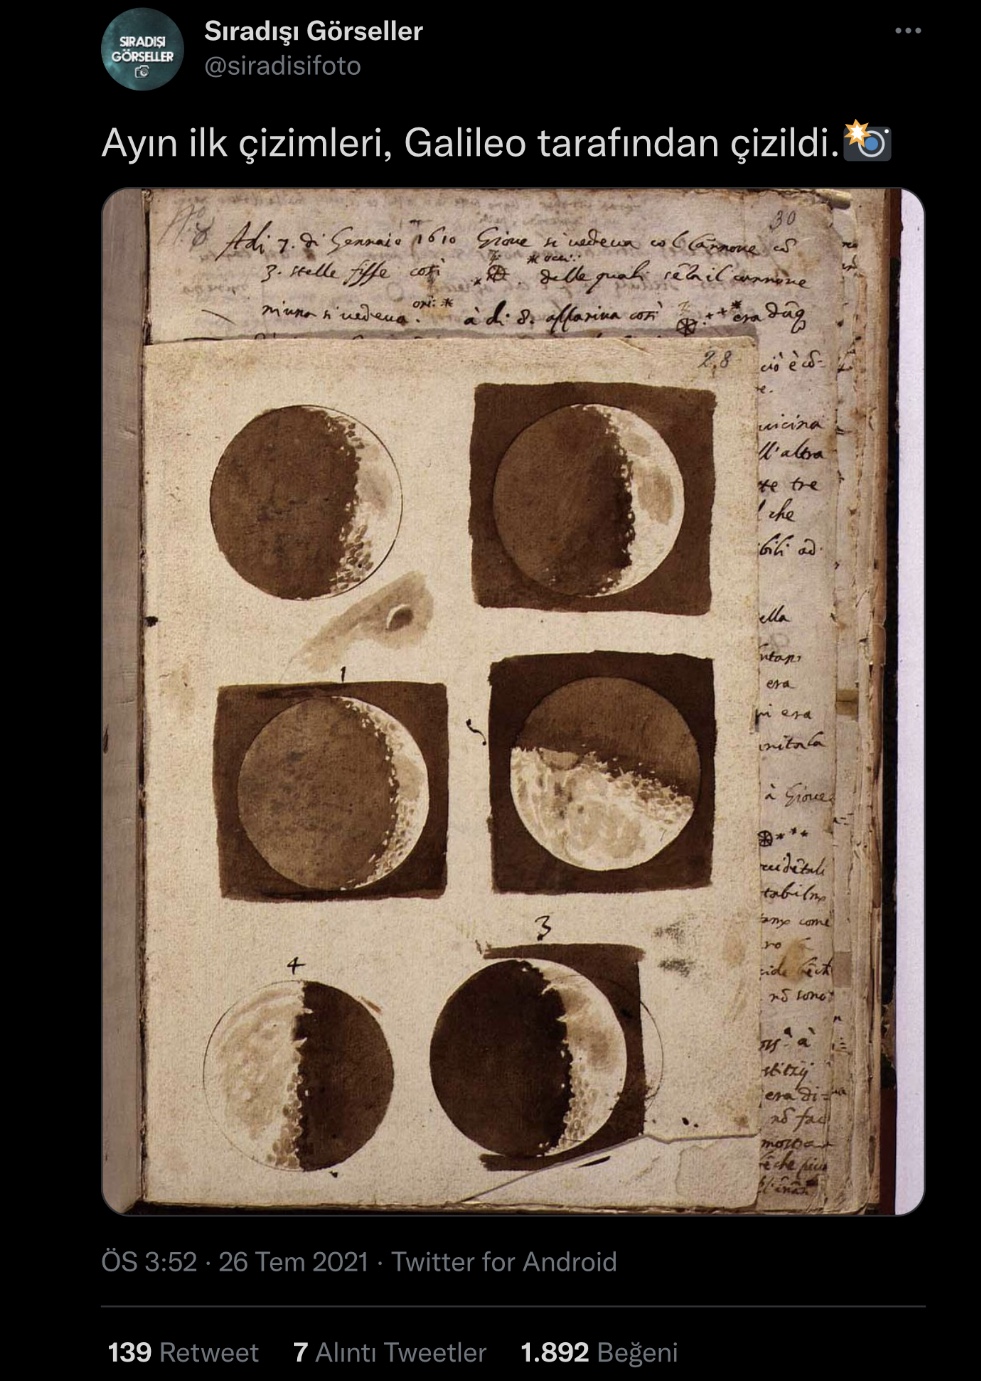 SIRADIŞI
GÖRSELLER
Sıradışı Görseller
@siradisifoto
Ayın ilk çizimleri, Galileo tarafından çizildi.
30
Adi 7. di Gennaio 1610 Giove si vedeva col Cannone cõ
3. stelle fisse cosi
delle quali sẽza il cannone
niuna si vedeva. à di 8. appariva cosi era dũq
28
vicina
ll'altra
te tre
l che
bili ad
ella
era
era
à Giove
come
nõ sono
era di
nõ fac
1
3
4
ÖS 3:52 · 26 Tem 2021 · Twitter for Android
139 Retweet 7 Alıntı Tweetler 1.892 Beğeni